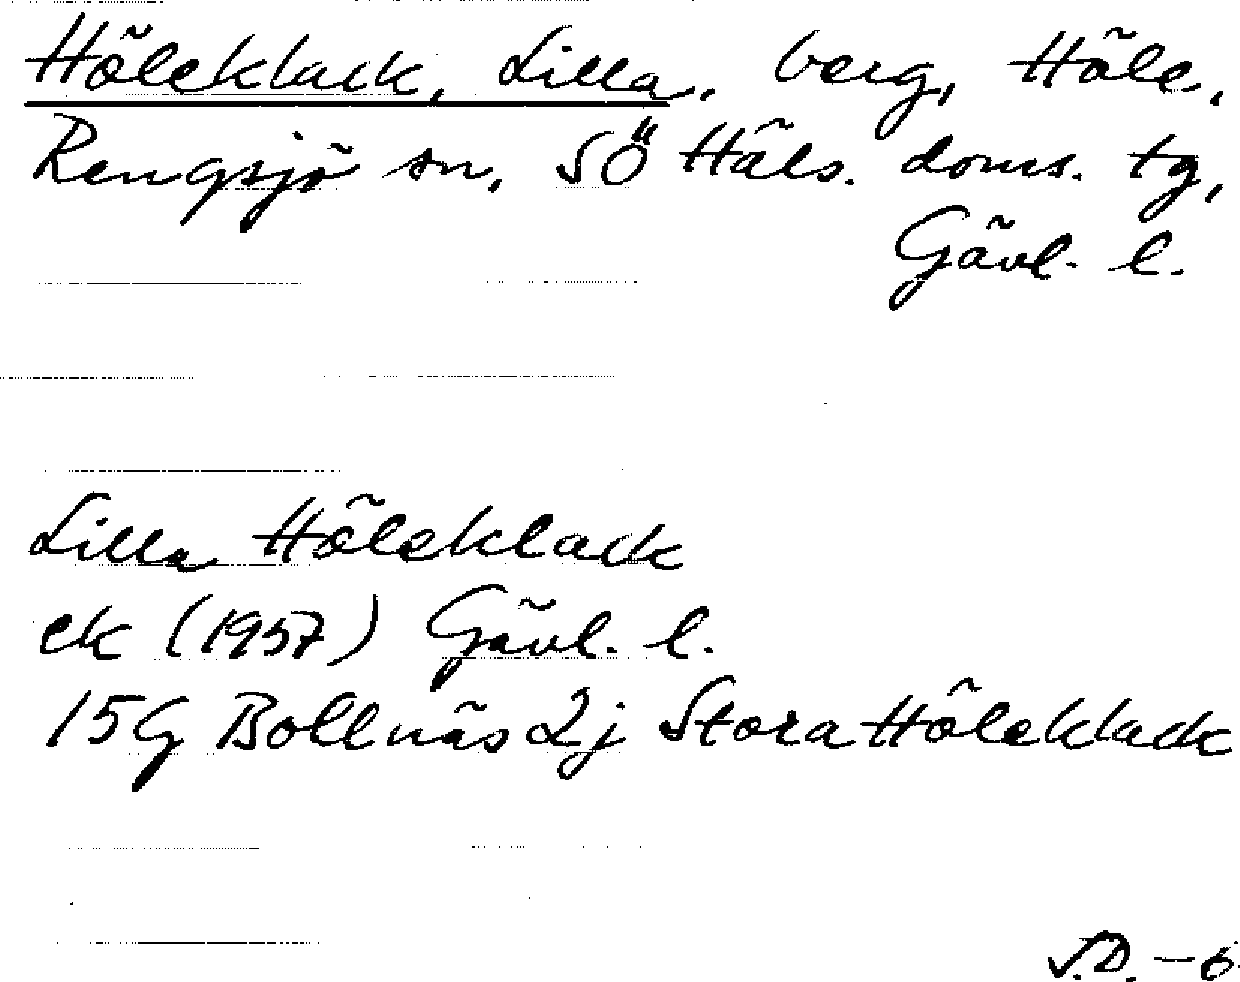 Höleklack, Lilla, berg, Höle,
Rengsjö sn, SÖ Häls. doms. tg,
Gävl. l.
Lilla Höleklack
ek (1957) Gävl. l.
15G Bollnäs 2j Stora Höleklack
S.D. -6